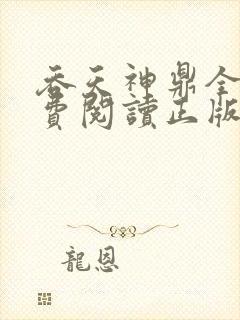 吞天神鼎全
費閱讀正版
龍恩